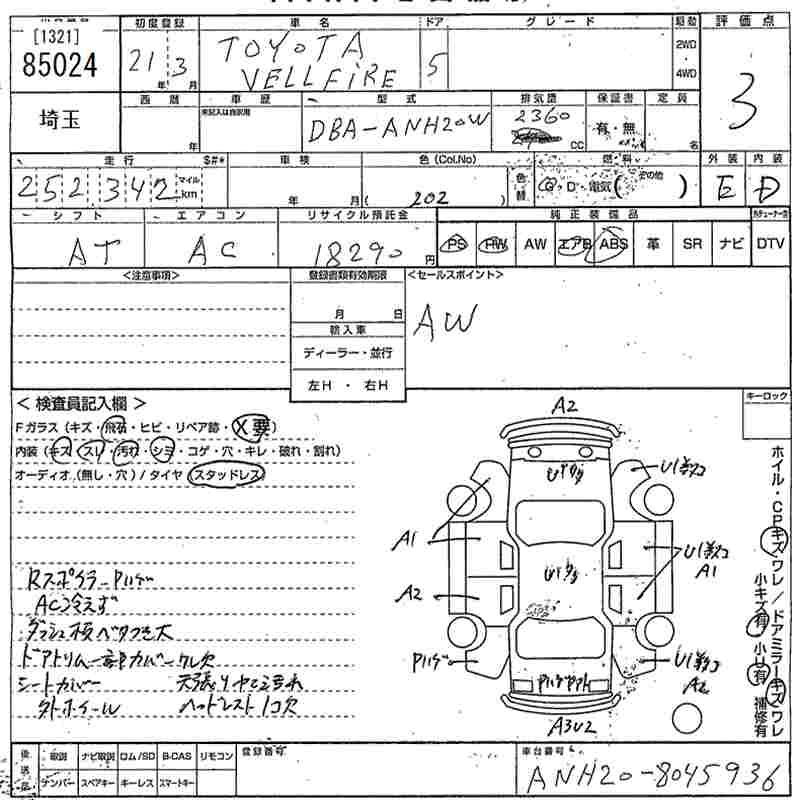 [1321]
85024
埼玉
初度登録
21年 3月
車名
TOYOTA
VELLFIRE
ドア
5
グレード
駆動
2WD
4WD
評価点
3
西暦
年
車歴
未記入は自家用
型式
DBA-ANH20W
排気量
2360
CC
保証書
有・無
定員
名
走行
S#*
252342
マイル
km
車検
年 月
色(Col.No)
( 202 )
色替
燃料
G・D・電気( その他 )
外装
E
内装
D
シフト
AT
エアコン
AC
リサイクル預託金
18290円
純正装備品
PS PW AW エアB ABS 革 SR ナビ DTV
<注意事項>
登録書類有効期限
月 日
輸入車
ディーラー・並行
左H ・ 右H
<セールスポイント>
AW
<検査員記入欄>
Fガラス(キズ・飛石・ヒビ・リペア跡・X要)
内装(キズ・スレ・汚れ・シミ・コゲ・穴・キレ・破れ・割れ)
オーディオ(無し・穴)/タイヤ(スタッドレス)
Rスポイラーハゲ
AC冷えず
ダッシュ板ベタつき大
ドアトリム一部カバークレ欠
シートカバー
外ホイール ヘッドレスト1コ欠
キーロック
A2
A1
A2
ハゲ
U1数コ
U1数コ
A1
U1数コ
A2
A3U2
ホイル・CPキズワレ/ドアミラーキズワレ
小キズ有 小U有 補修有
後送品
取説 ナビ取説 ロム/SD B-CAS リモコン
テンパー スペアキー キーレス スマートキー
登録番号
車台番号
ANH20-8045936